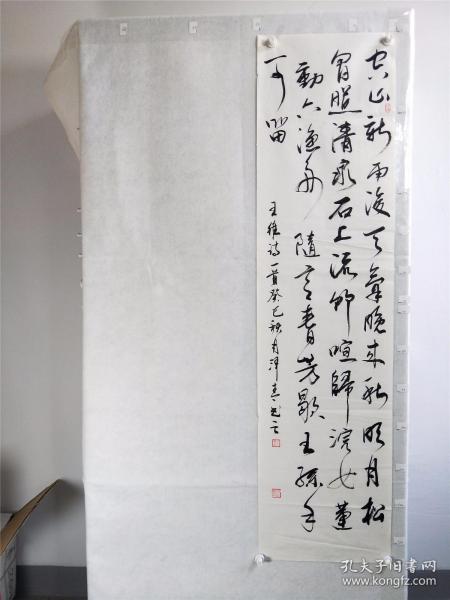 空山新雨後天氣晚來秋明月松
間照清泉石上流竹喧歸浣女蓮
動下漁舟隨意春芳歇王孫自
可留
王維詩一首癸巳秋月
孔夫子旧书网
www.kongfz.com